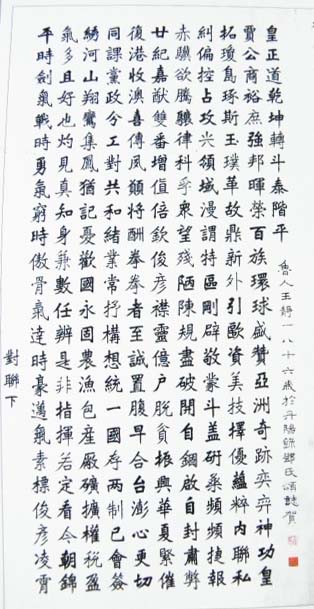 皇正道乾坤轉斗泰階平
賈公商裕庶強邦暉榮百族環球盛贊亞洲奇跡奕奕神功皇
拓瓊島琢斯玉璞革故鼎新外引歐資美技擇優蘊粹內聯私
糾偏控占攻領域漫謂特區剛辟敢蒙斗盖研頻頻捷報
赤驥欲騰驤律科孚眾望殘陋陳規盡破開自錮啟自封肅弊
廿紀嘉猷雙番增值倍欽俊彥襟靈億戶脫貧振興華夏緊催
復港收澳喜傳風顛將酬拳拳者至誠置腹早合台澎心更切
同課黨政分工對共和緒業常抒構想統一國存兩制已會簽
綺河山翔鸞集鳳猶記憂歡國永固農漁包產廠礦擴權稅盈
氣多且好也灼見真知身兼數任辨是非指揮若定看今朝錦
平時創氣戰時勇氣窮時傲骨氣達時豪邁氣素標俊彥凌霄
魯人王靜一八十六歲於丹陽鄧氏頌誌賀
對聯下